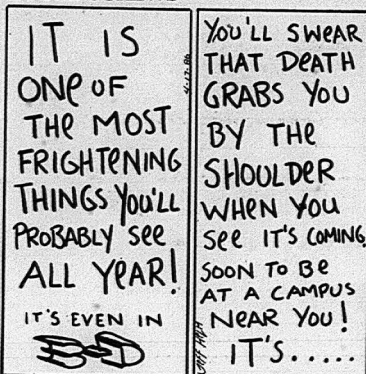 IT IS
ONe OF
THe MOST
FRIGHTeNING
THINGS YOU'LL
PROBABLY See
ALL YeAR!
IT'S EVEN IN
3-D
YOU'LL SWEAR
THAT DeATH
GRABS YOU
BY THe
SHOULDER
WHeN YOU
See IT'S COMING
SOON TO Be
AT A CAMPUS
NeAR YOU!
IT'S.....